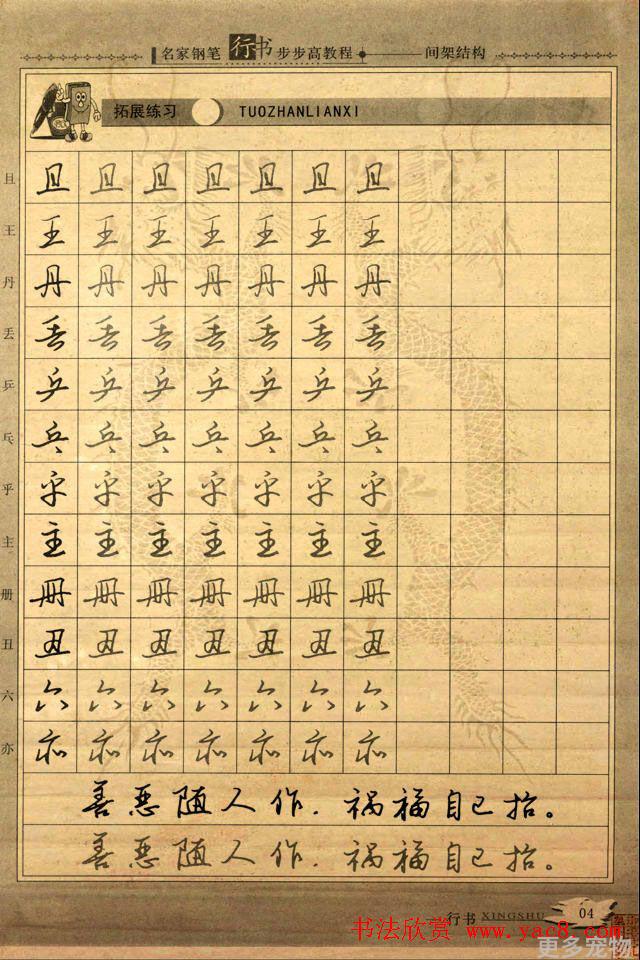 名家钢笔行书步步高教程 间架结构
拓展练习 TUOZHANLIANXI
且 且 且 且 且 且 且 且
王 王 王 王 王 王 王 王
丹 丹 丹 丹 丹 丹 丹 丹
丢 丢 丢 丢 丢 丢 丢 丢
乒 乒 乒 乒 乒 乒 乒 乒
乓 乓 乓 乓 乓 乓 乓 乓
乎 乎 乎 乎 乎 乎 乎 乎
主 主 主 主 主 主 主 主
册 册 册 册 册 册 册 册
丑 丑 丑 丑 丑 丑 丑 丑
六 六 六 六 六 六 六 六
亦 亦 亦 亦 亦 亦 亦 亦
善恶随人作,祸福自己招。
善恶随人作,祸福自己招。
行书 XINGSHU 04
书法欣赏 www.yac8.com
更多宠物